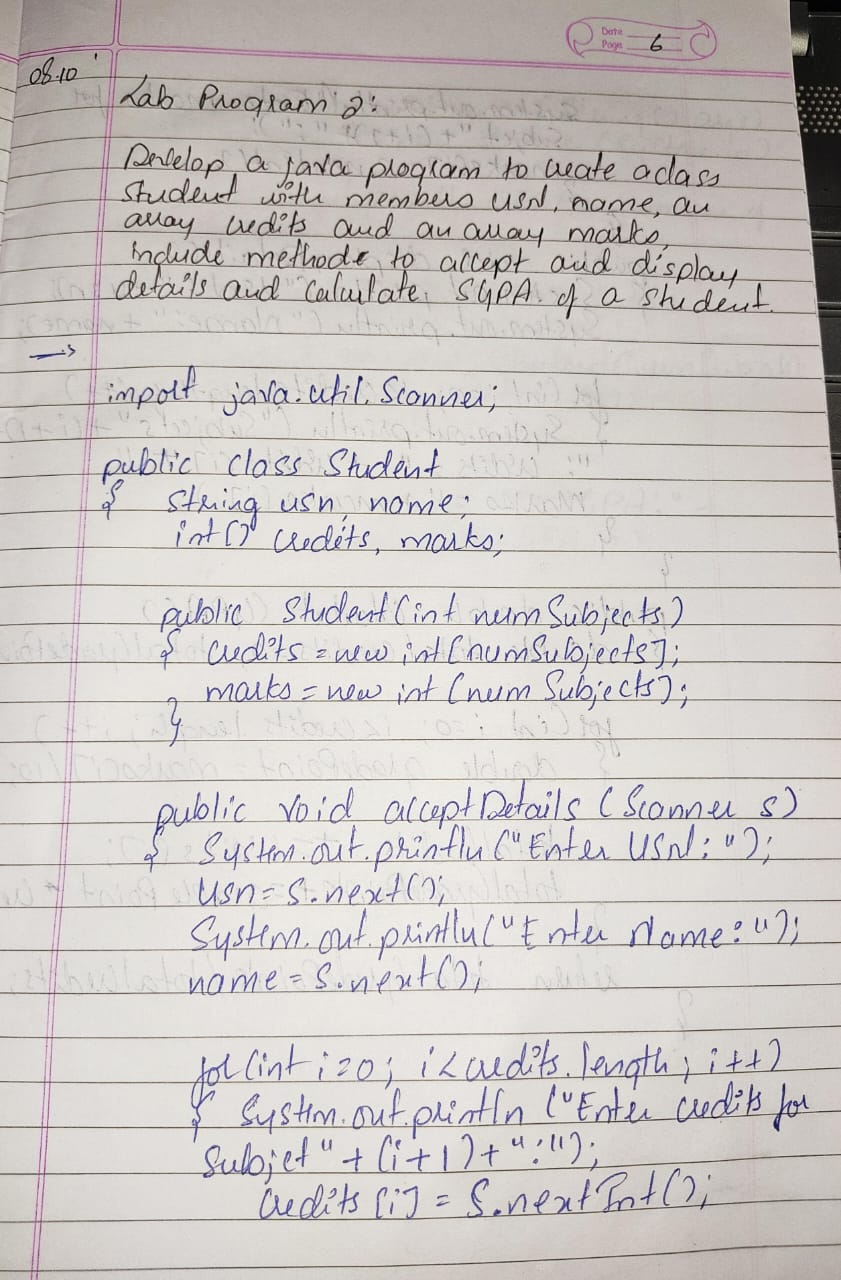 Date
Page 6
08.10
Lab Program 2:
Develop a java program to create a class
Student with members usn, name, an
array credits and an array marks,
include methods to accept and display
details and calculate SGPA of a student.
→
import java.util.Scanner;
public class Student
{ String usn, name;
int[] credits, marks;
public Student(int numSubjects)
{ credits = new int[numSubjects];
marks = new int[numSubjects];
}
public void acceptDetails (Scanner s)
{ System.out.println("Enter USN: ");
usn = S.next();
System.out.println("Enter Name: ");
name = S.next();
for (int i=0; i<credits.length; i++)
{ System.out.println ("Enter credits for
Subjet" + (i+1) + ":");
Credits [i] = S.nextInt();